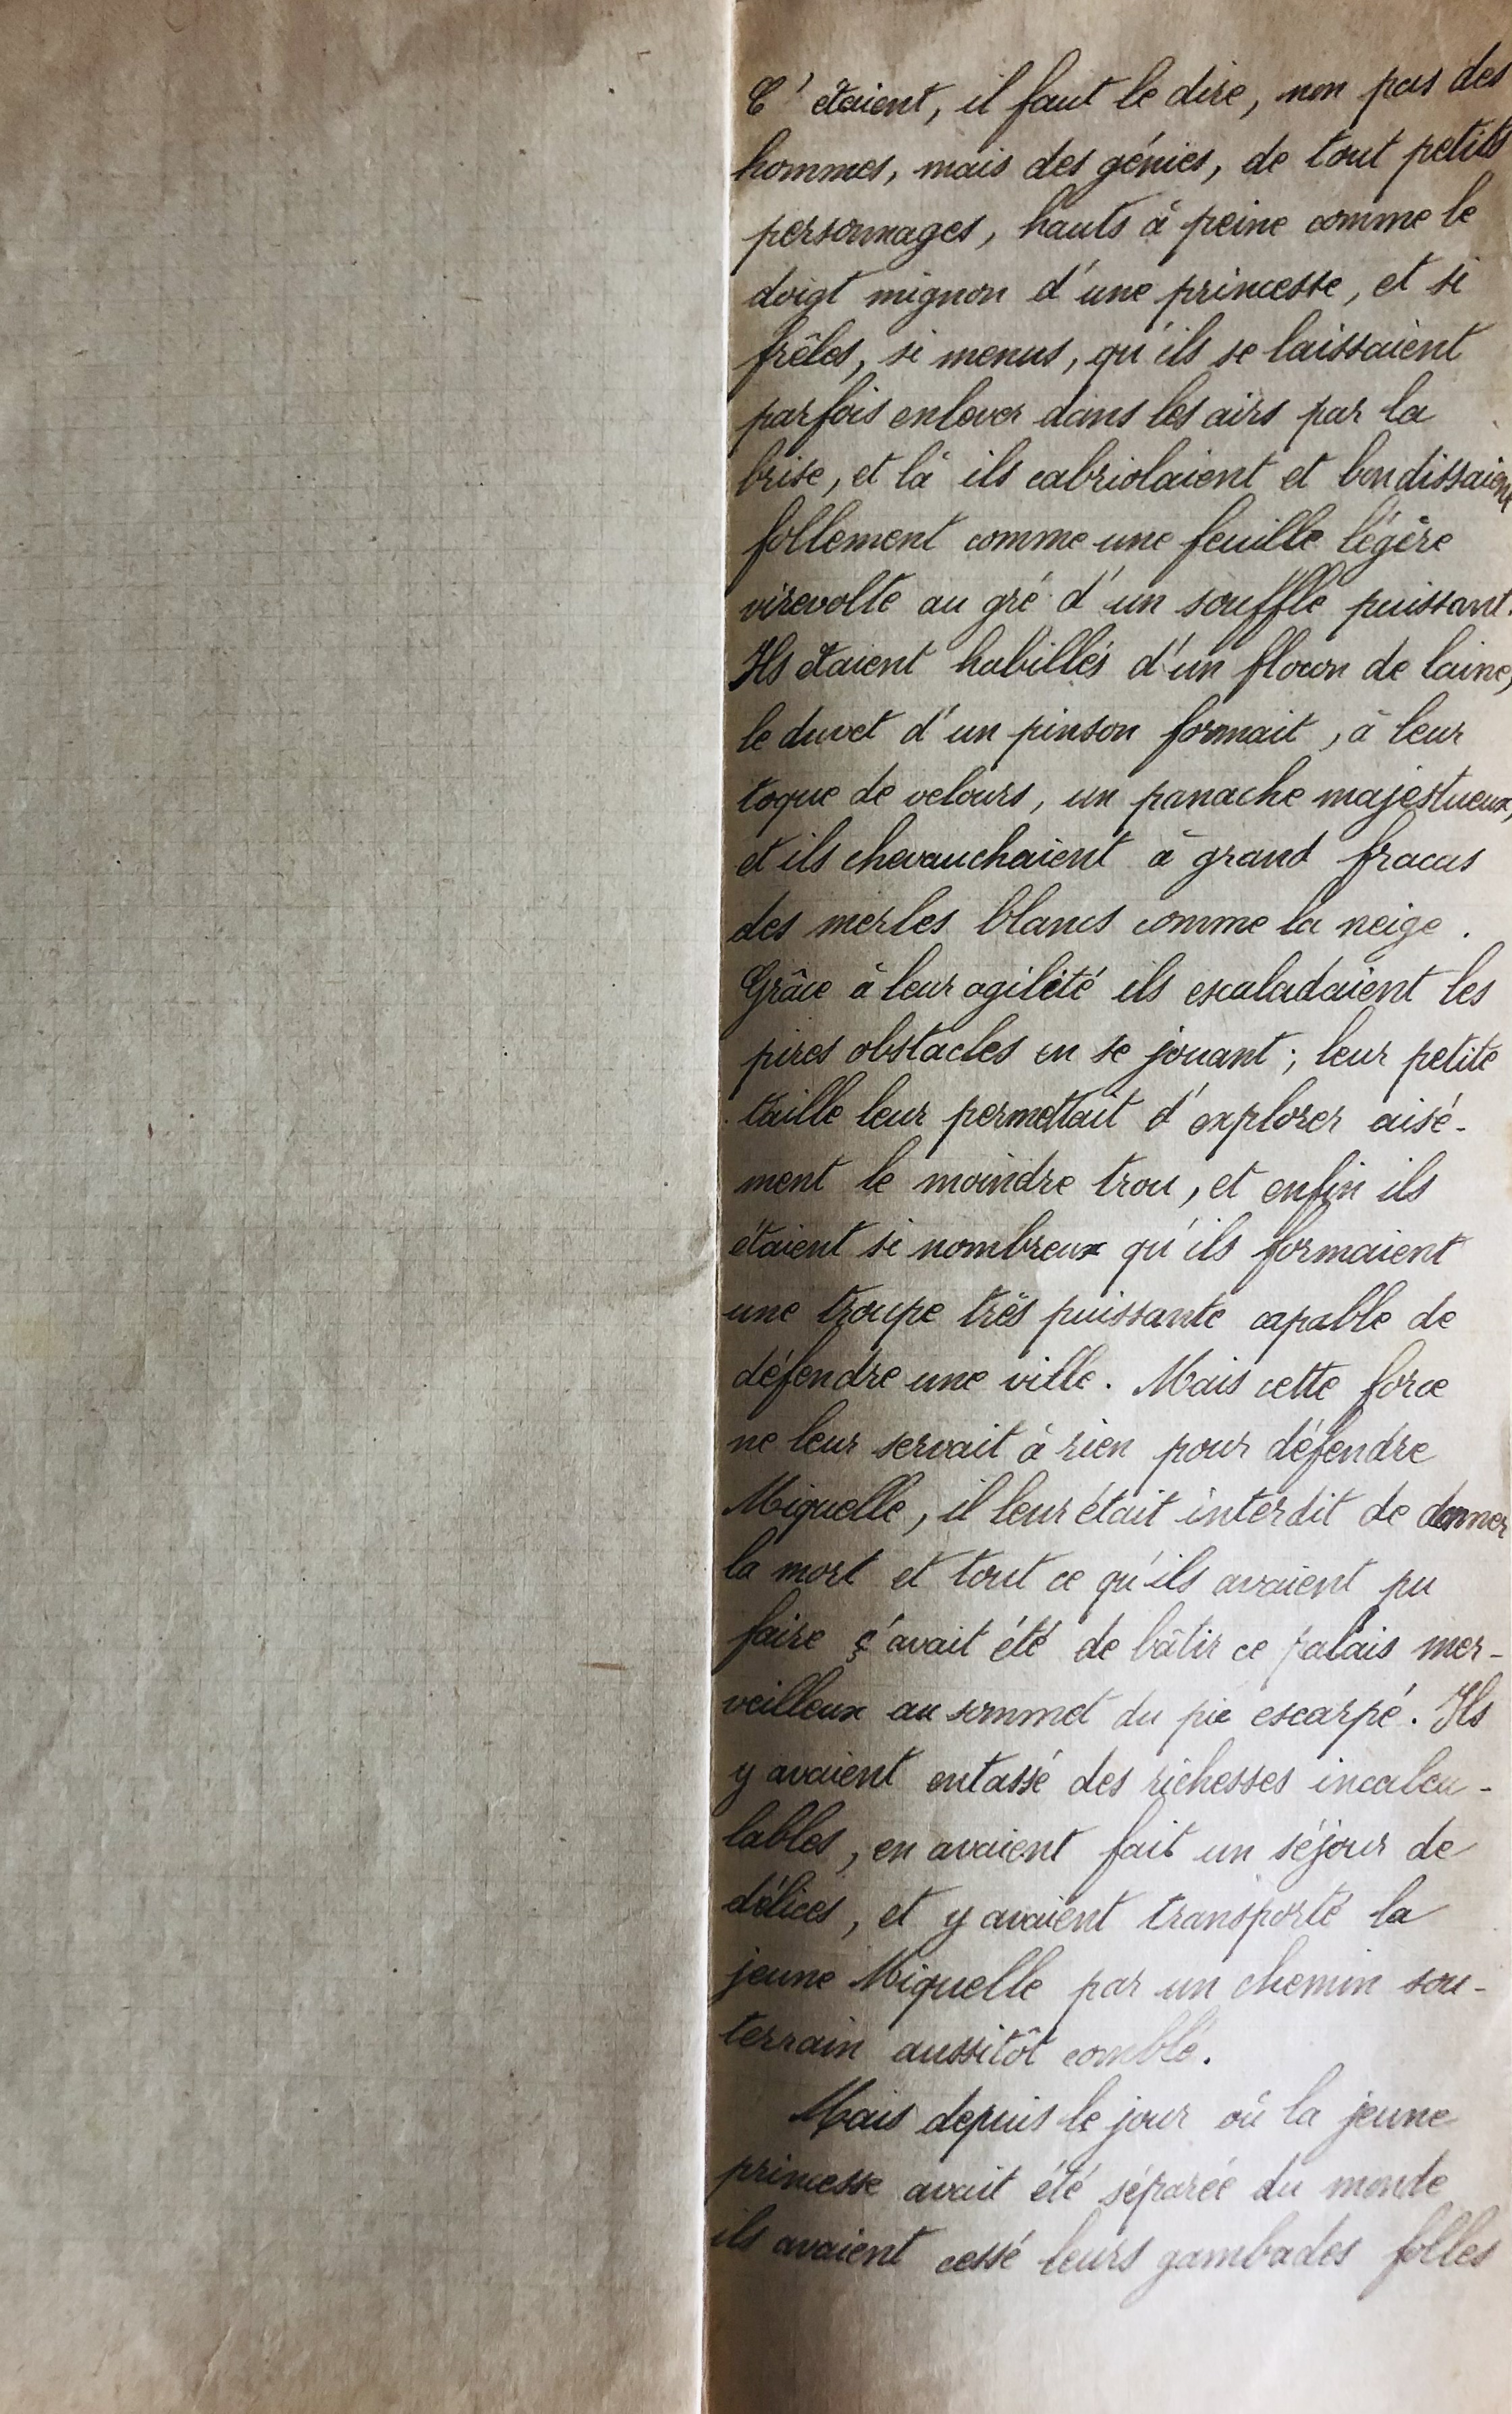 C'étaient, il faut le dire, non pas des
hommes, mais des génies, de tout petits
personnages, hauts à peine comme le
doigt mignon d'une princesse, et si
frêles, si menus, qu'ils se laissaient
parfois enlever dans les airs par la
brise, et là ils cabriolaient et bondissaient
follement comme une feuille légère
virevolte au gré d'un souffle puissant.
Ils étaient habillés d'un flocon de laine,
le duvet d'un pinson formait, à leur
toque de velours, un panache majestueux,
et ils chevauchaient à grand fracas
des merles blancs comme la neige.
Grâce à leur agilité ils escaladaient les
pires obstacles en se jouant ; leur petite
taille leur permettait d'explorer aisé-
ment le moindre trou, et enfin ils
étaient si nombreux qu'ils formaient
une troupe très puissante capable de
défendre une ville. Mais cette force
ne leur servait à rien pour défendre
Miquelle, il leur était interdit de donner
la mort et tout ce qu'ils avaient pu
faire ç'avait été de bâtir ce palais mer-
veilleux au sommet du pic escarpé. Ils
y avaient entassé des richesses incalcu-
lables, en avaient fait un séjour de
délices, et y avaient transporté la
jeune Miquelle par un chemin sou-
terrain aussitôt comblé.
Mais depuis le jour où la jeune
princesse avait été séparée du monde
ils avaient cessé leurs gambades folles